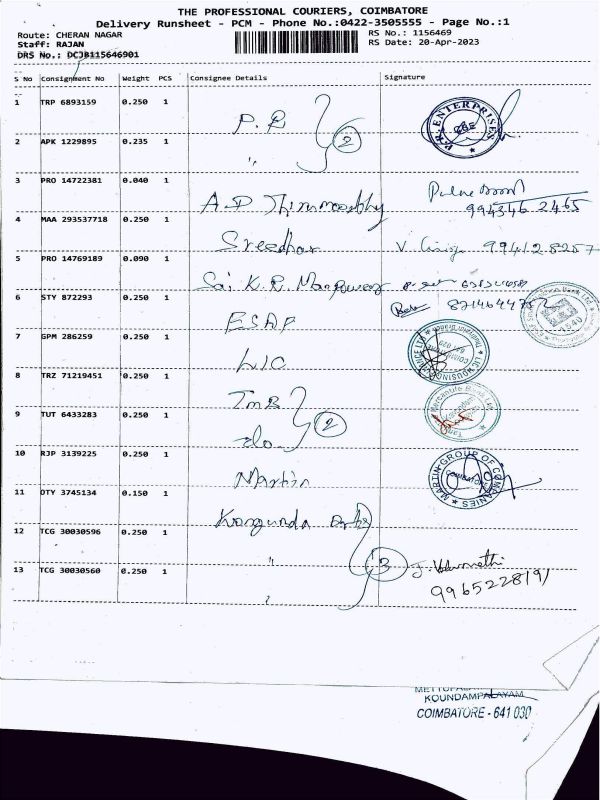 THE PROFESSIONAL COURIERS, COIMBATORE
Delivery Runsheet - PCM - Phone No.:0422-3505555 - Page No.:1
Route: CHERAN NAGAR
Staff: RAJAN
DRS No.: DCJB115646901
RS No.: 1156469
RS Date: 20-Apr-2023
S No Consignment No Weight PCS Consignee Details Signature
1 TRP 6893159 0.250 1 P.R
2 APK 1229895 0.235 1 " 2
3 PRO 14722381 0.040 1 A.P
994346 2465
4 MAA 293537718 0.250 1 Sreedhar V 994128257
5 PRO 14769189 0.090 1 Sai K.R.
6 STY 872293 0.250 1 ESAF
7 GPM 286259 0.250 1 LIC
8 TRZ 71219451 0.250 1 TMB
9 TUT 6433283 0.250 1 do. 2
10 RJP 3139225 0.250 1 Martin
MARTIN GROUP OF COMPANIES
COIMBATORE
11 OTY 3745134 0.150 1
12 TCG 30030596 0.250 1 " 3
13 TCG 30030560 0.250 1 "
9965228191
KOUNDAMPALAYAM
COIMBATORE - 641 030